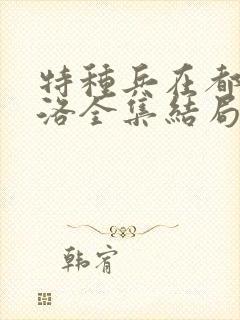 特種兵在都
洛全集結局
韓宥